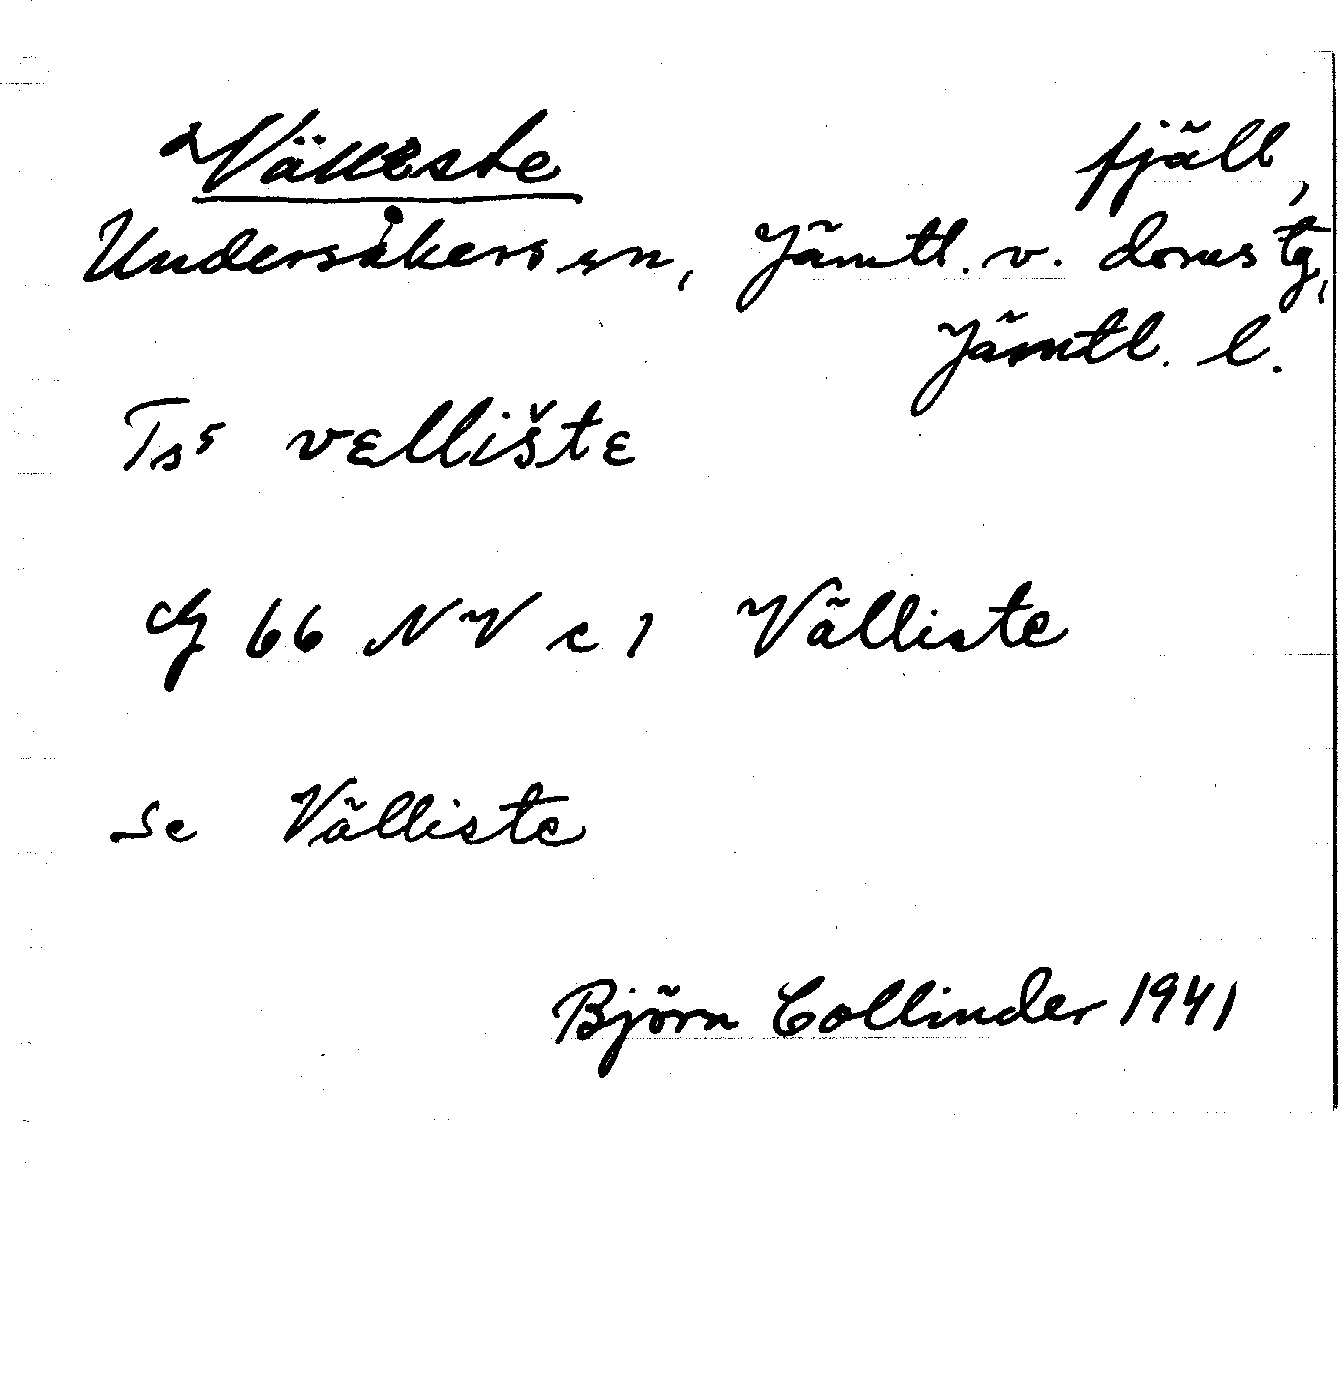 Välleste fjäll,
Undersåkers sn, Jämtl. v. doms tg,
Jämtl. l.
Ts⁵ vɛllištɛ
Cg 66 NV c 1 Välliste
Se Välliste
Björn Collinder 1941